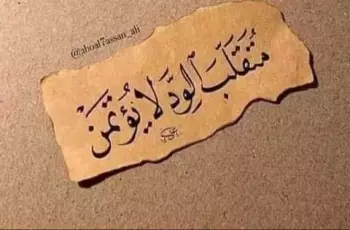 @aboal7assan_ali
متقلب الود لا يؤتمن